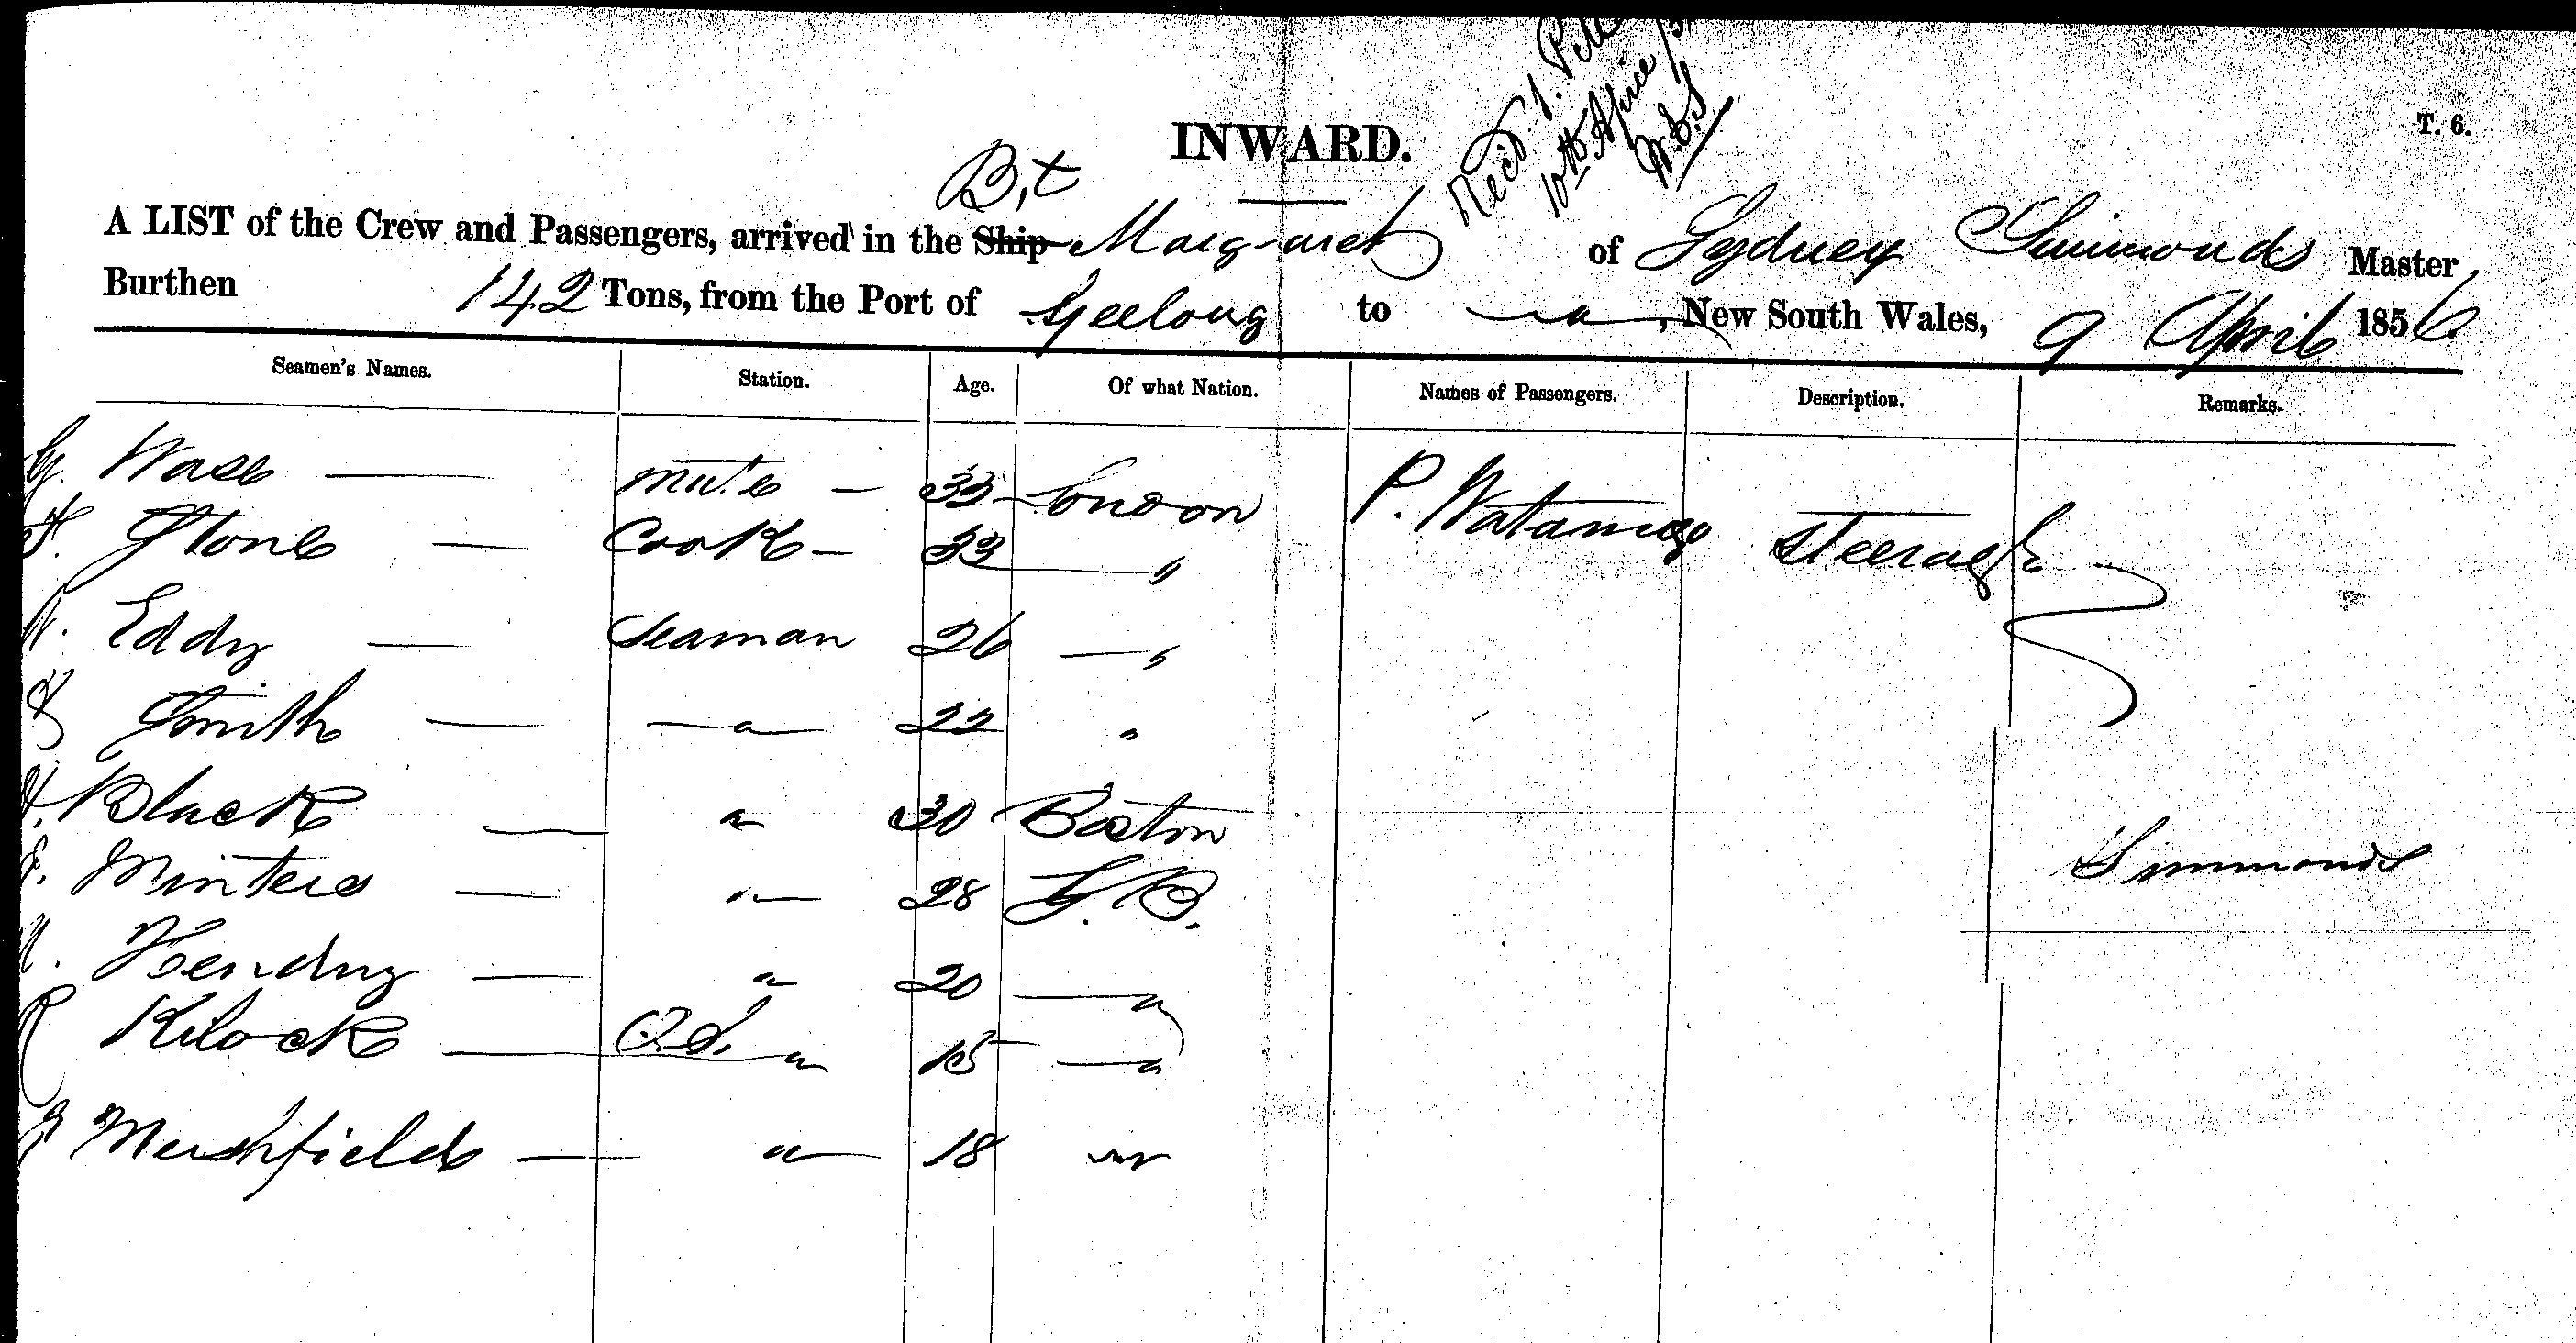 INWARD.
T. 6.
10th April
Bt
A LIST of the Crew and Passengers, arrived in the Ship Margaret of Sydney Simmonds Master
Burthen 142 Tons, from the Port of Geelong to , New South Wales, 9 April 1856
Seamen's Names. Station. Age. Of what Nation. Names of Passengers. Description. Remarks.
G. Wase — Mate — 33 London P. Steerage
Stone — Cook — 33 — "
Eddy — Seaman 26 — "
Smith — — " — 22 "
Black — " 30 Boston
Simmonds
Minters — " 28 G. B.
Hendry — " 20 — "
R Kilock — O.S. " 18 — "
Marshfield — " 18 "